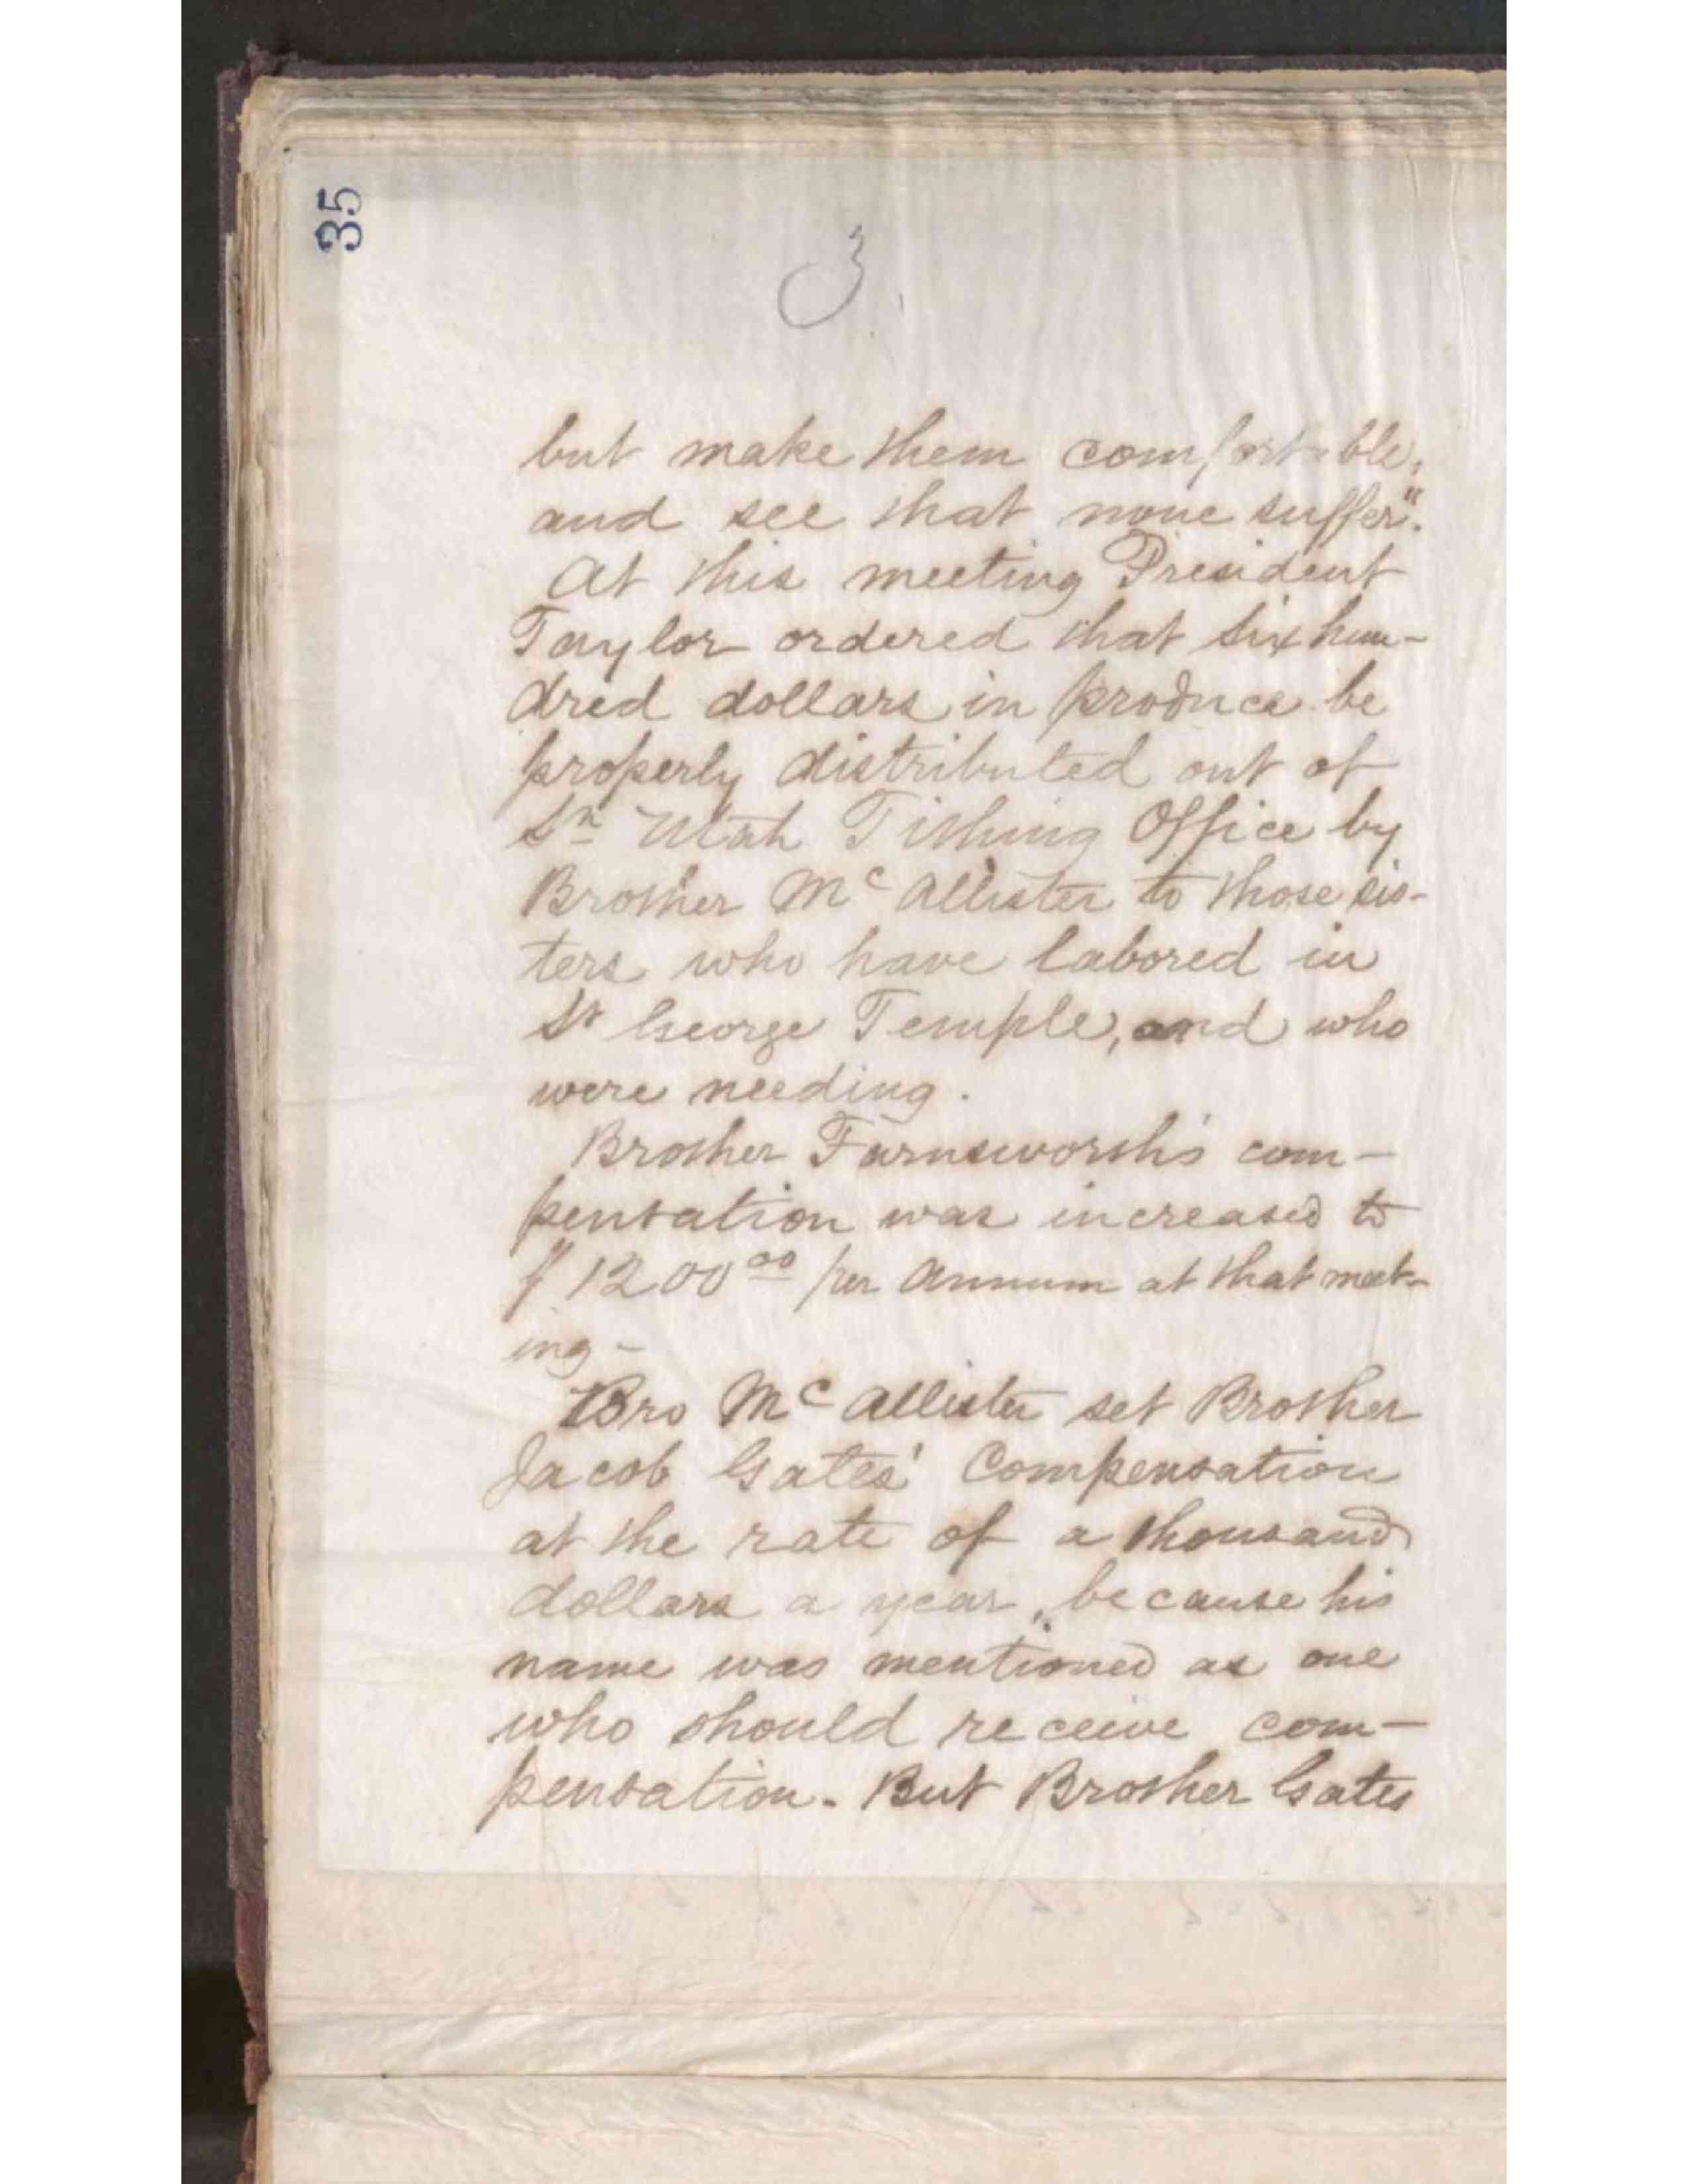 35
3
but make them comfortable,
and see that none suffer".
At this meeting President
Taylor ordered that six hun-
dred dollars in produce be
properly distributed out of
Sn Utah Tithing Office by
Brother Mc Allister to those sis-
ters who have labored in
St George Temple, and who
were needing.
Brother Farnsworth's com-
pensation was increased to
$1200 00 per Annum at that meet-
ing-
Bro Mc Allister set Brother
Jacob Gates' Compensation
at the rate of a thousand
dollars a year, because his
name was mentioned as one
who should receive com-
pensation. But Brother Gates